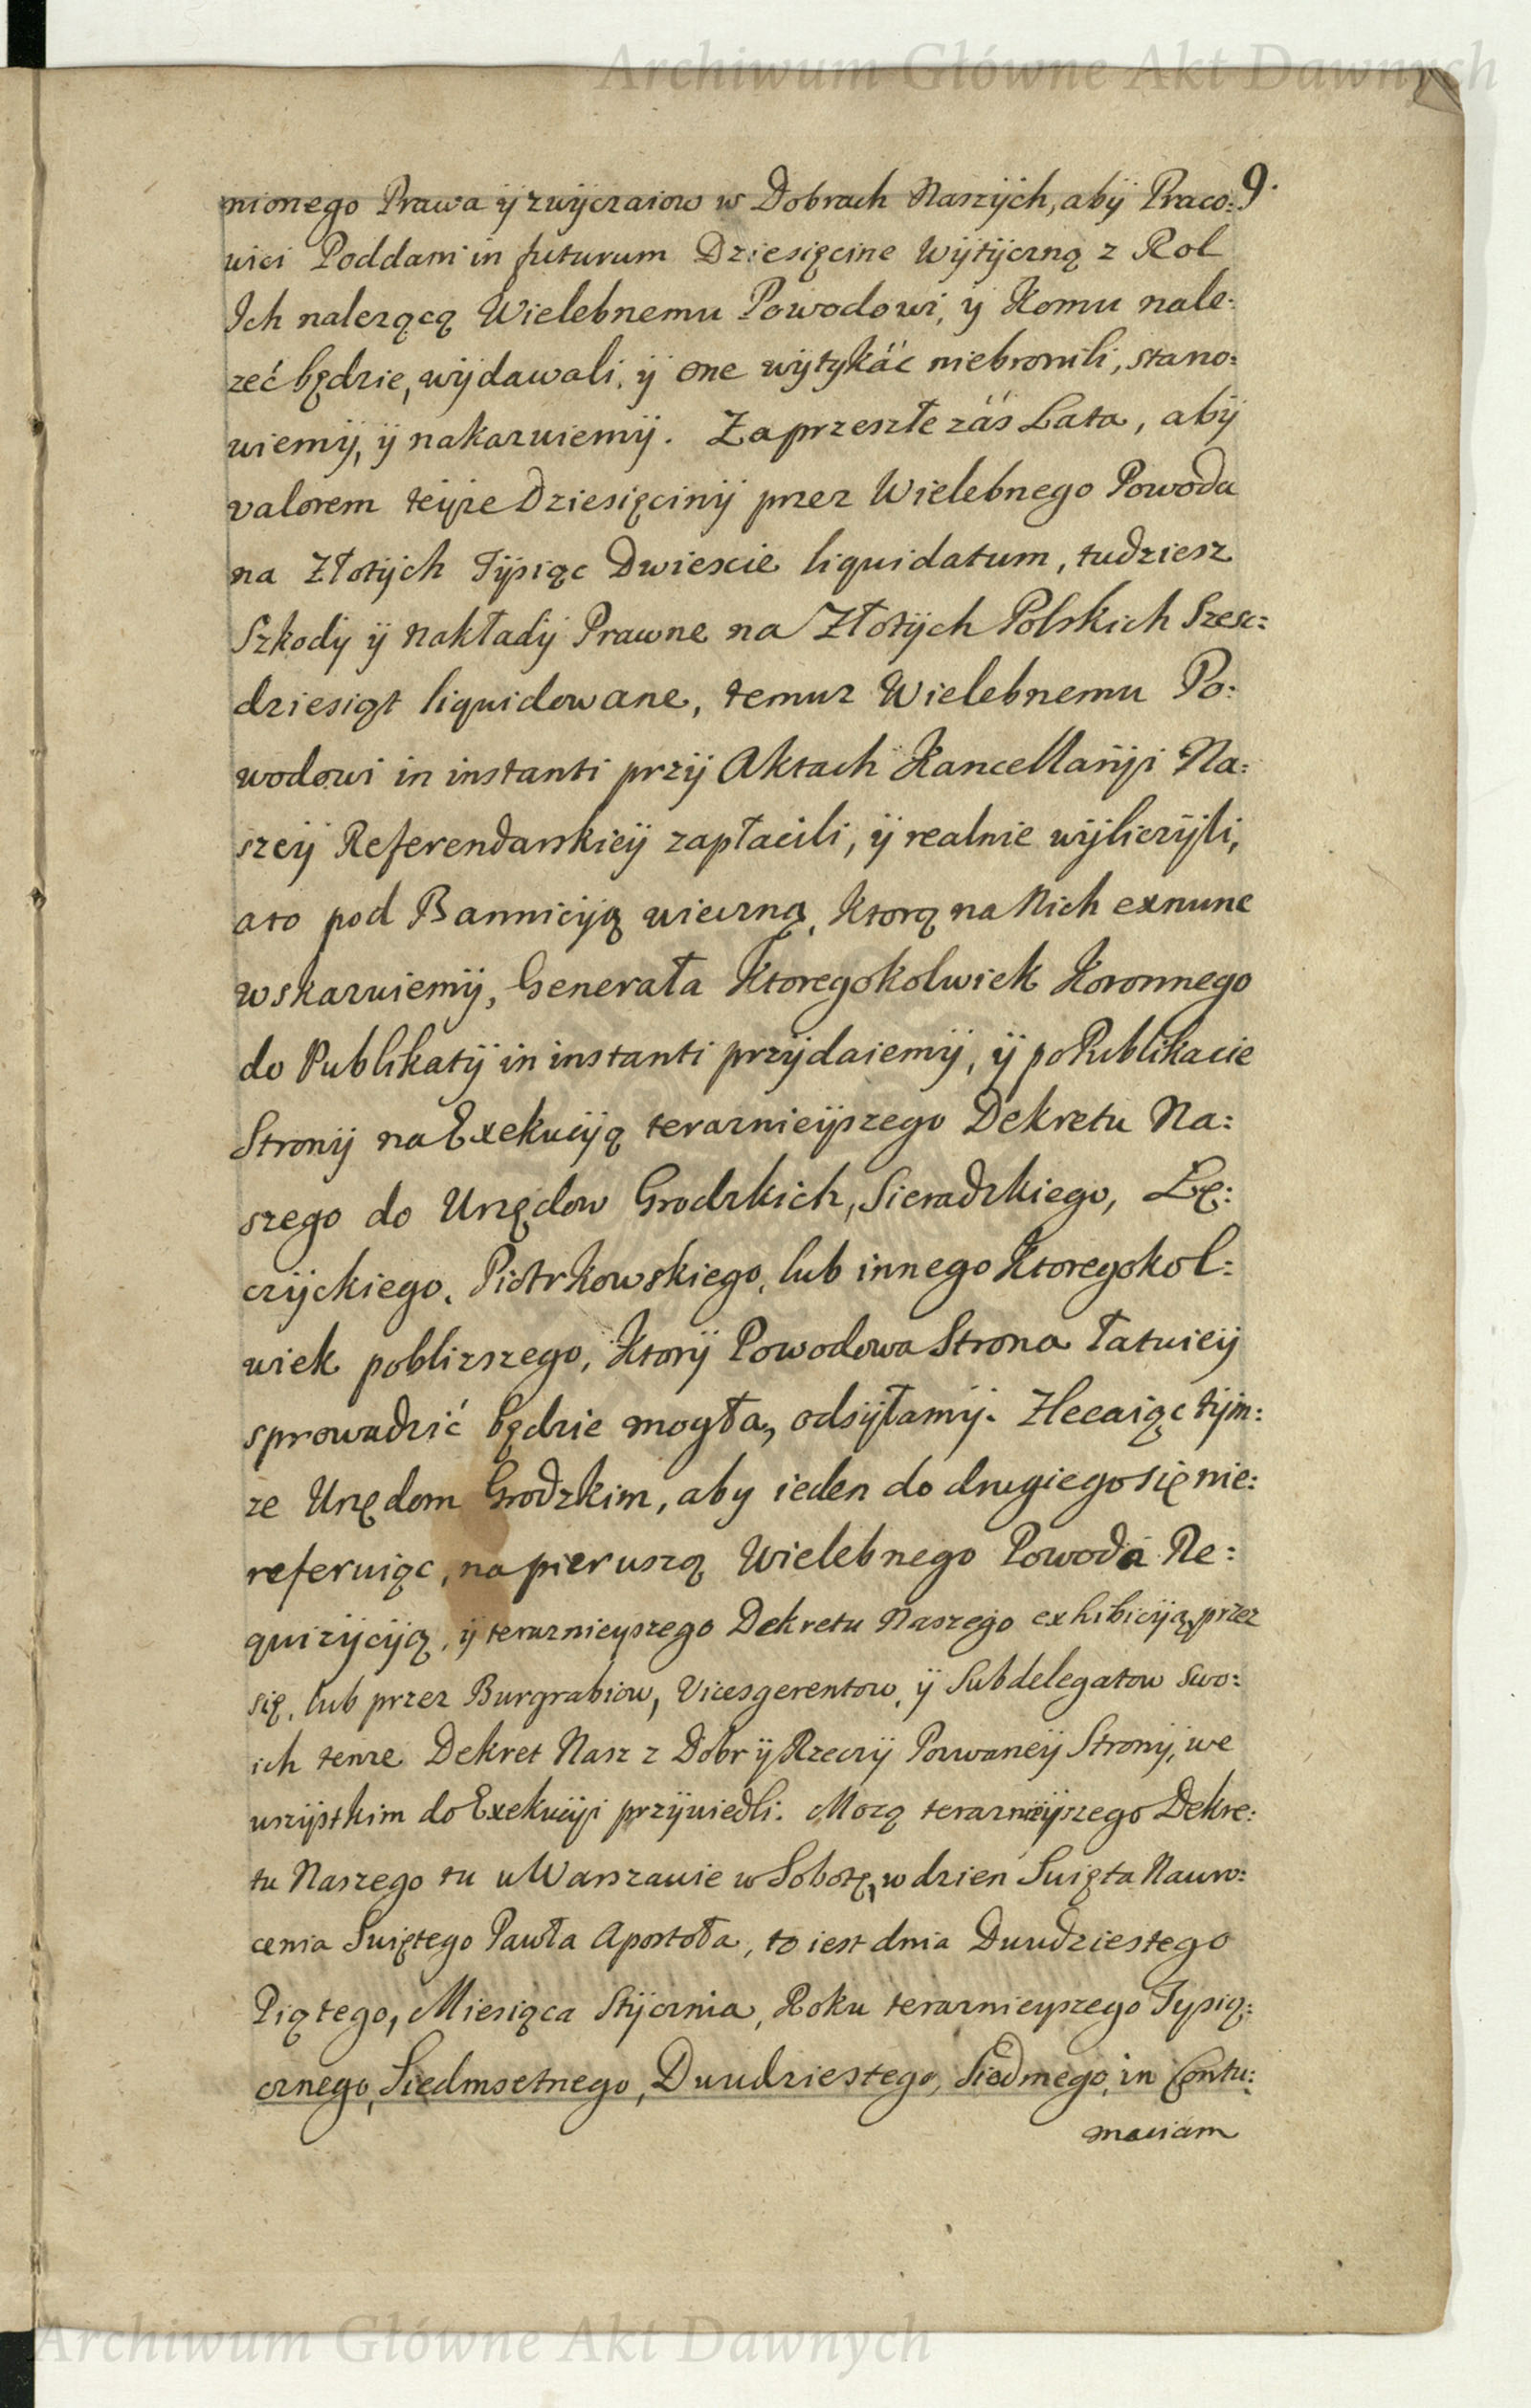 Archiwum Główne Akt Dawnych
9.
nionego Prawa ÿ zwÿczaiow w Dobrach Naszÿch, abÿ Praco:
wici Poddani in futurum Dziesięcine Wÿtÿczną z Rol
Ich nalezącą Wielebnemu Powodowi, y Komu nale:
zeć będzie, wÿdawali, ÿ one wÿtykáć niebronili, stano:
wiemÿ, ÿ nakazuiemÿ. Zaprzeszłe záś Lata, abÿ
valorem teÿze Dziesięcinÿ przez Wielebnego Powoda
na Złotÿch Tÿsiąc Dwiescie liquidatum, tudziesz
Szkody ÿ nakładÿ Prawne na Złotÿch Polskich Szesc:
dziesiąt liquidowane, temuz Wielebnemu Po:
wodowi in instanti przÿ Aktach Kancellarÿi Na:
szeÿ Referendarskieÿ zapłacili, ÿ realnie wÿliczÿli,
ato pod Bannicÿą wieczną, Ktorą na Nich exnunc
wskazuiemÿ, Generała Ktoregokolwiek Koronnego
do Publikatÿ in instanti przÿdaiemÿ, ÿ po Publikacie
Stronÿ na Exekucÿą teraznieÿszego Dekretu Na:
szego do Urzędow Grodzkich, Sieradzkiego, Łę:
czÿckiego, Piotrkowskiego, lub innego Ktoregokol:
wiek poblizszego, Ktorÿ Powodowa Strona łatwieÿ
sprowadzić będzie mogła, odsÿłamÿ. Zlecaiąc tÿm:
ze Urzędom Grodzkim, aby ieden do drugiego się nie:
referuiąc, na pierwszą Wielebnego Powoda Re:
quizÿcÿą, ÿ terazniey­szego Dekretu Naszego exhibicÿą, przez
się, lub przez Burgrabiow, Vicesgerentow, ÿ Subdelegatow swo:
ich tenze Dekret Nasz z Dobr ÿ Rzeczÿ Pozwaneÿ Stronÿ, we
wszÿstkim do Exekucÿi przÿwiedli. Mocą terazniey­szego Dekre:
tu Naszego tu w Warszawie w Sobotę, w dzien Swięta Nawro:
cenia Swiętego Pawła Apostoła, to iest dnia Dwudziestego
Piątego, Miesiąca Stÿcznia, Roku terazniey­szego Tysią:
cznego, Siedmsetnego, Dwudziestego, Siodmego, in Contu:
maciam
Archiwum Główne Akt Dawnych